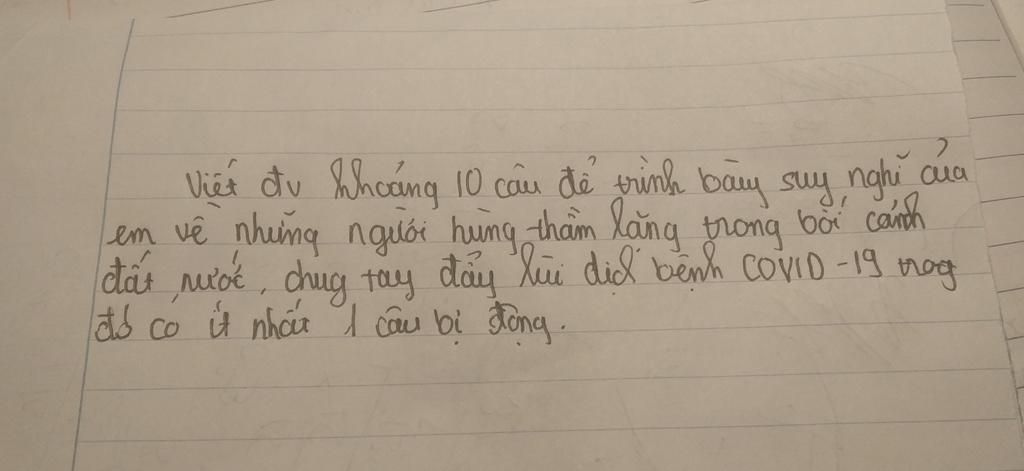 Viết đv khoảng 10 câu để trình bày suy nghĩ của
em về những người hùng thầm lặng trong bối cảnh
đất nước, chug tay đẩy lùi dịch bệnh COVID-19 trog
đó co ít nhất 1 câu bị động.